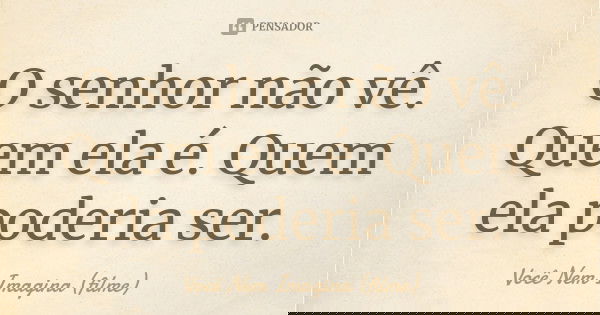 PENSADOR
O senhor não vê.
Quem ela é. Quem
ela poderia ser.
Você Nem Imagina (filme)